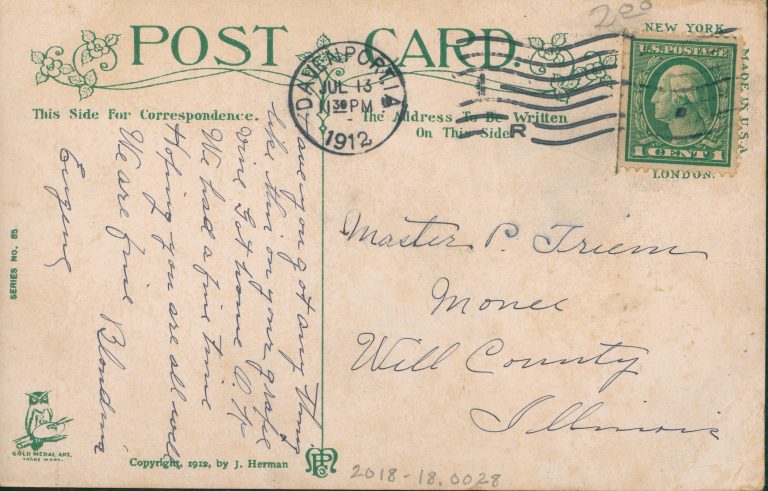 200
POST CARD.
NEW YORK
MADE IN U.S.A
LONDON.
DAVENPORT IA
JUL 13
1 30 PM
1912
R
U.S. POSTAGE
1 CENT 1
This Side For Correspondence.
The Address To Be Written
On This Side
Have you got any thing
like this on your grape
vine Got home O.K
We had a fine time
Hoping you are all well
We are fine Blondina
Eugene
Master P. Triem
Monee
Will County
Illinois
SERIES NO. 85
GOLD MEDAL ART.
TRADE MARK.
Copyright, 1912, by J. Herman
2018-18.0028